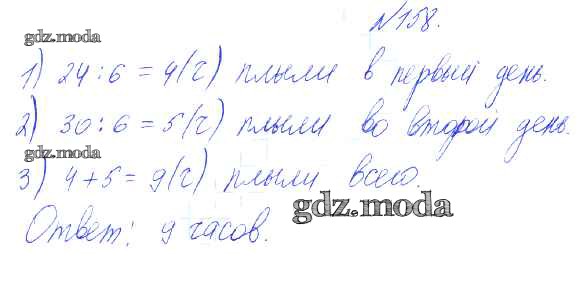 №158.
gdz.moda
1) 24 : 6 = 4 (г) плыли в первый день.
2) 30 : 6 = 5 (г) плыли во второй день.
gdz.moda
3) 4 + 5 = 9 (г) плыли всего.
gdz.moda
Ответ: 9 часов.